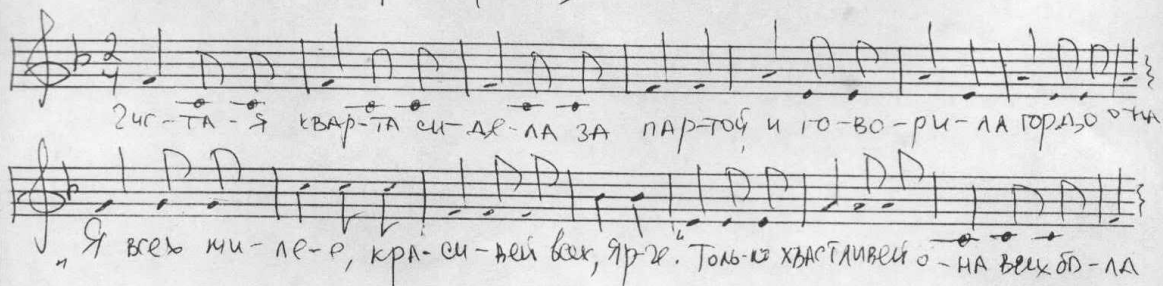 2
4
Чис-ТА-Я КВАР-ТА СИ-ДЕ-ЛА ЗА ПАР-ТОЙ И ГО-ВО-РИ-ЛА ГОРДО О-НА
„Я всех ми-ле-е, кра-си-вей всех, яр-че." Толь-ко хвастливей о-на всех бы-ла